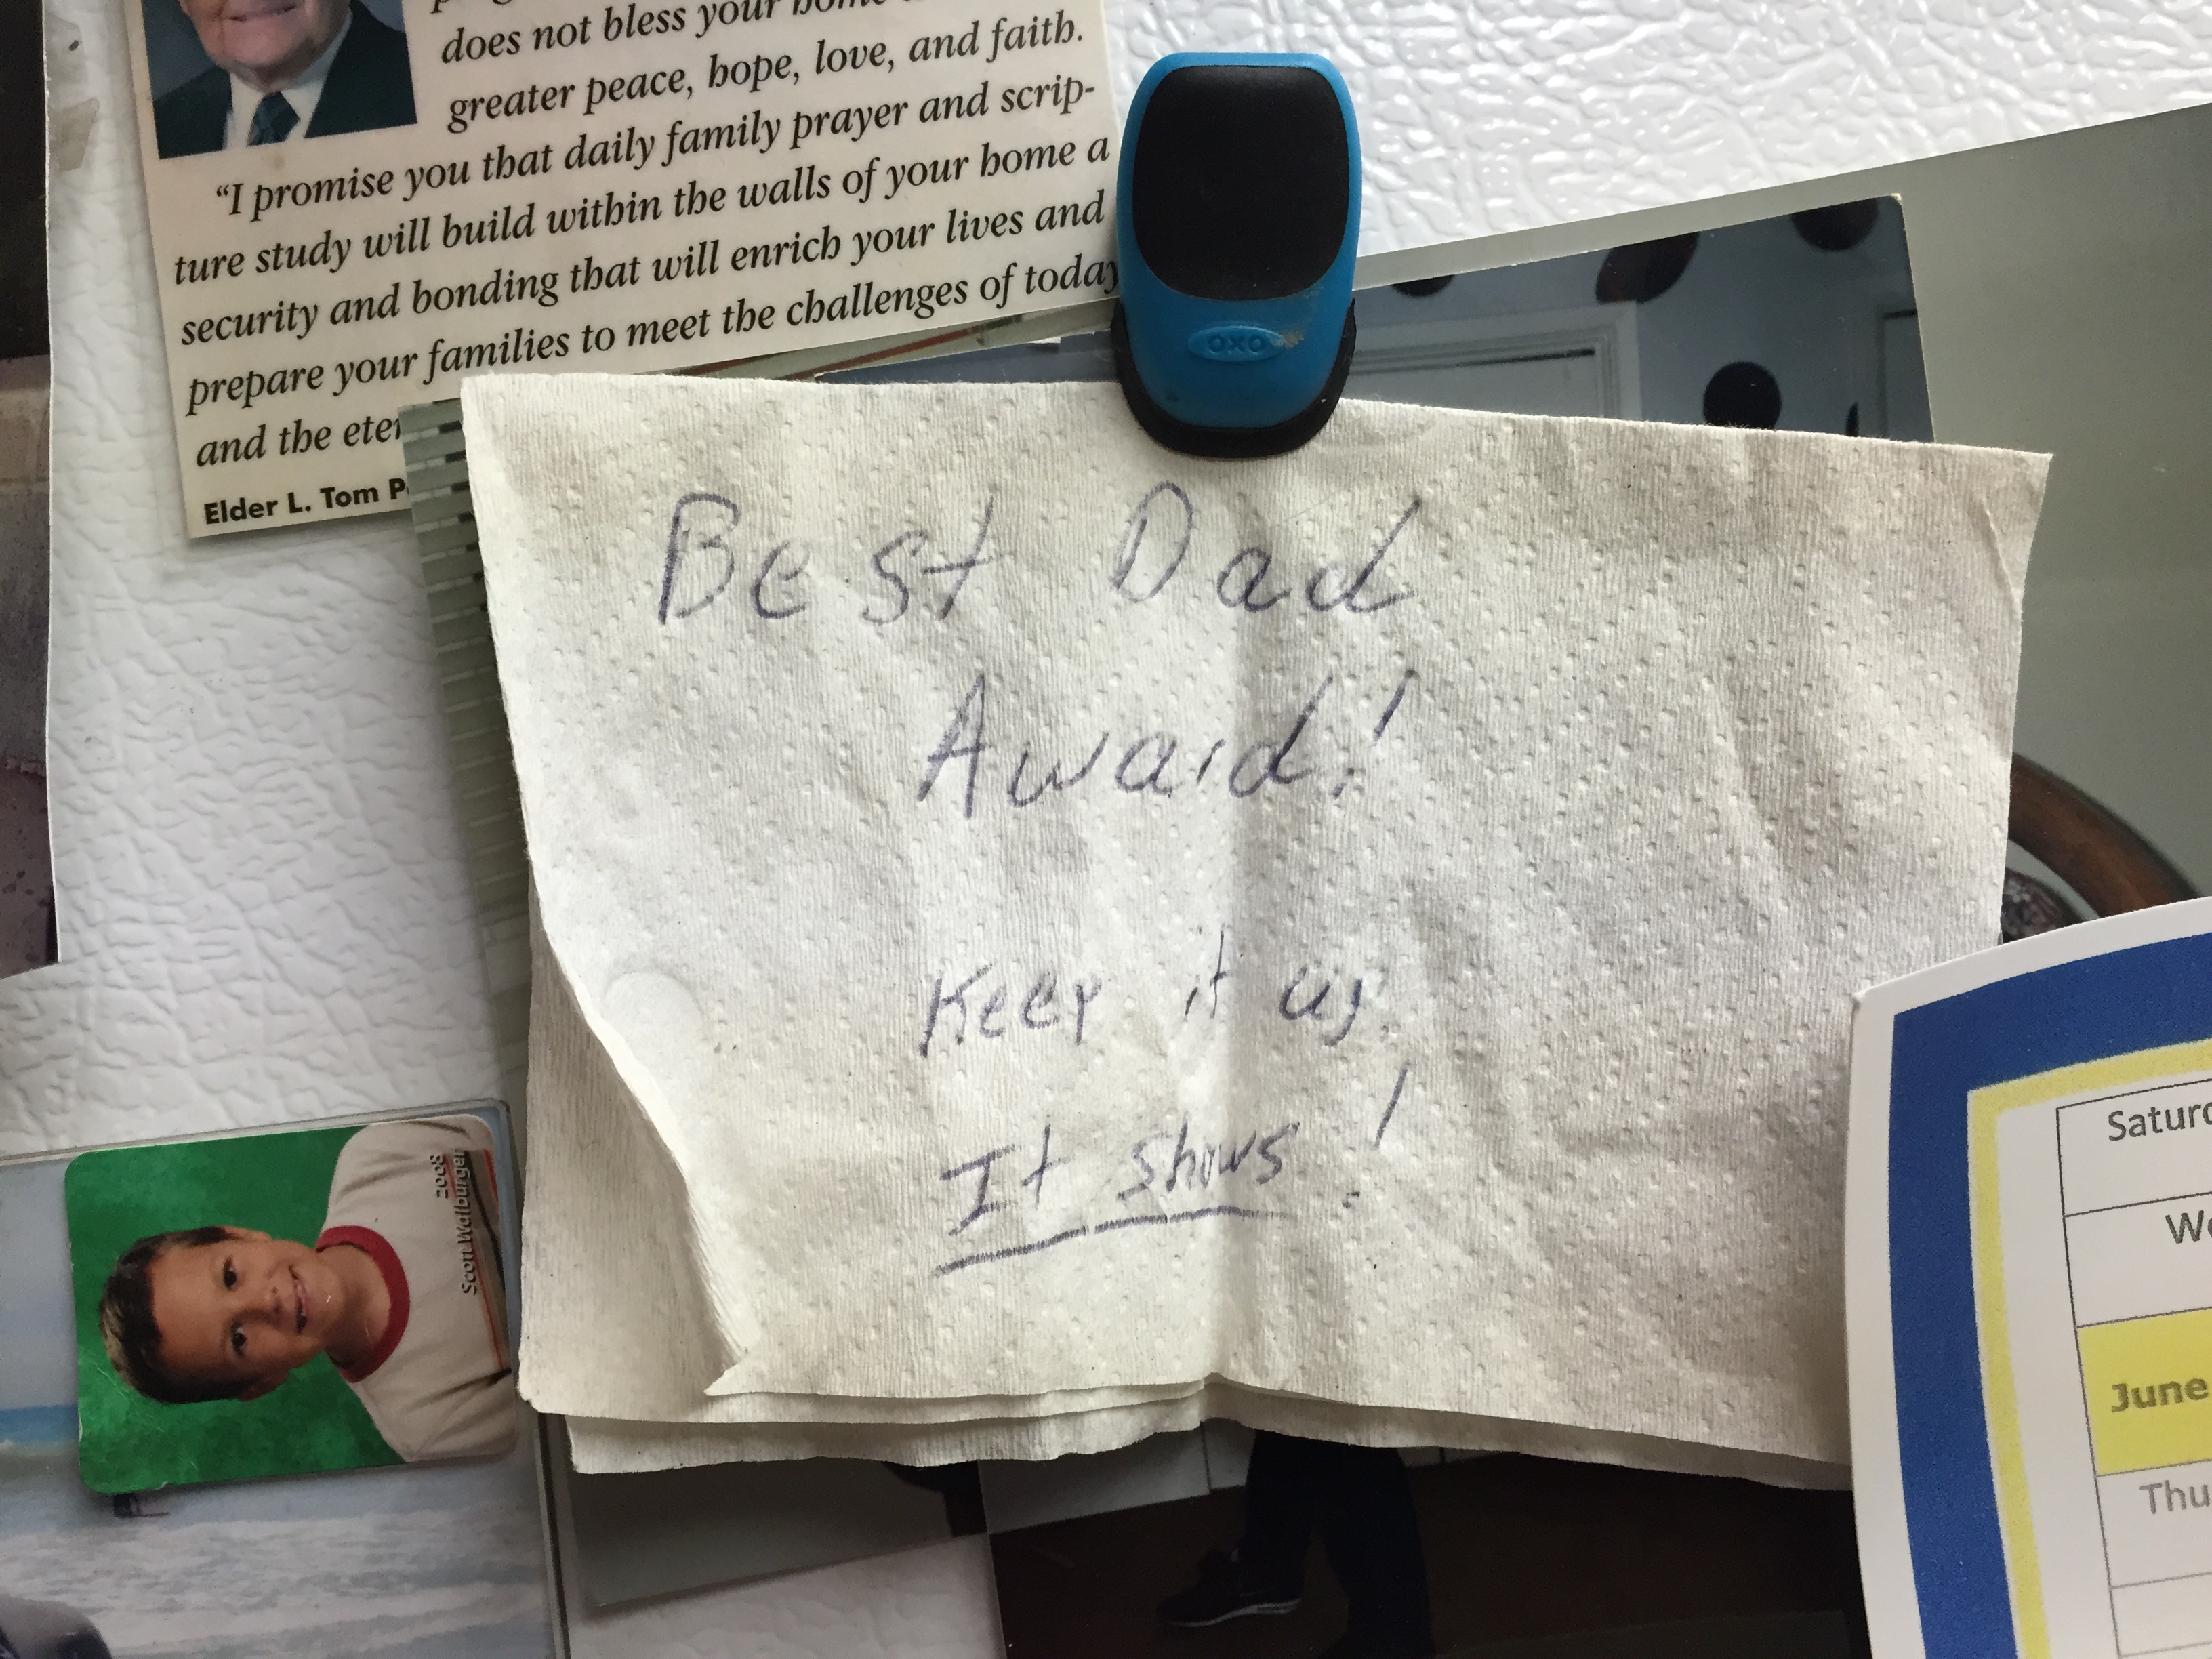 does not bless your home
greater peace, hope, love, and faith.
"I promise you that daily family prayer and scrip-
ture study will build within the walls of your home a
security and bonding that will enrich your lives and
prepare your families to meet the challenges of today
and the
Elder L. Tom
OXO
Best Dad
Award!
Keep it up.
It shows!
2008
Scott Walburger
June